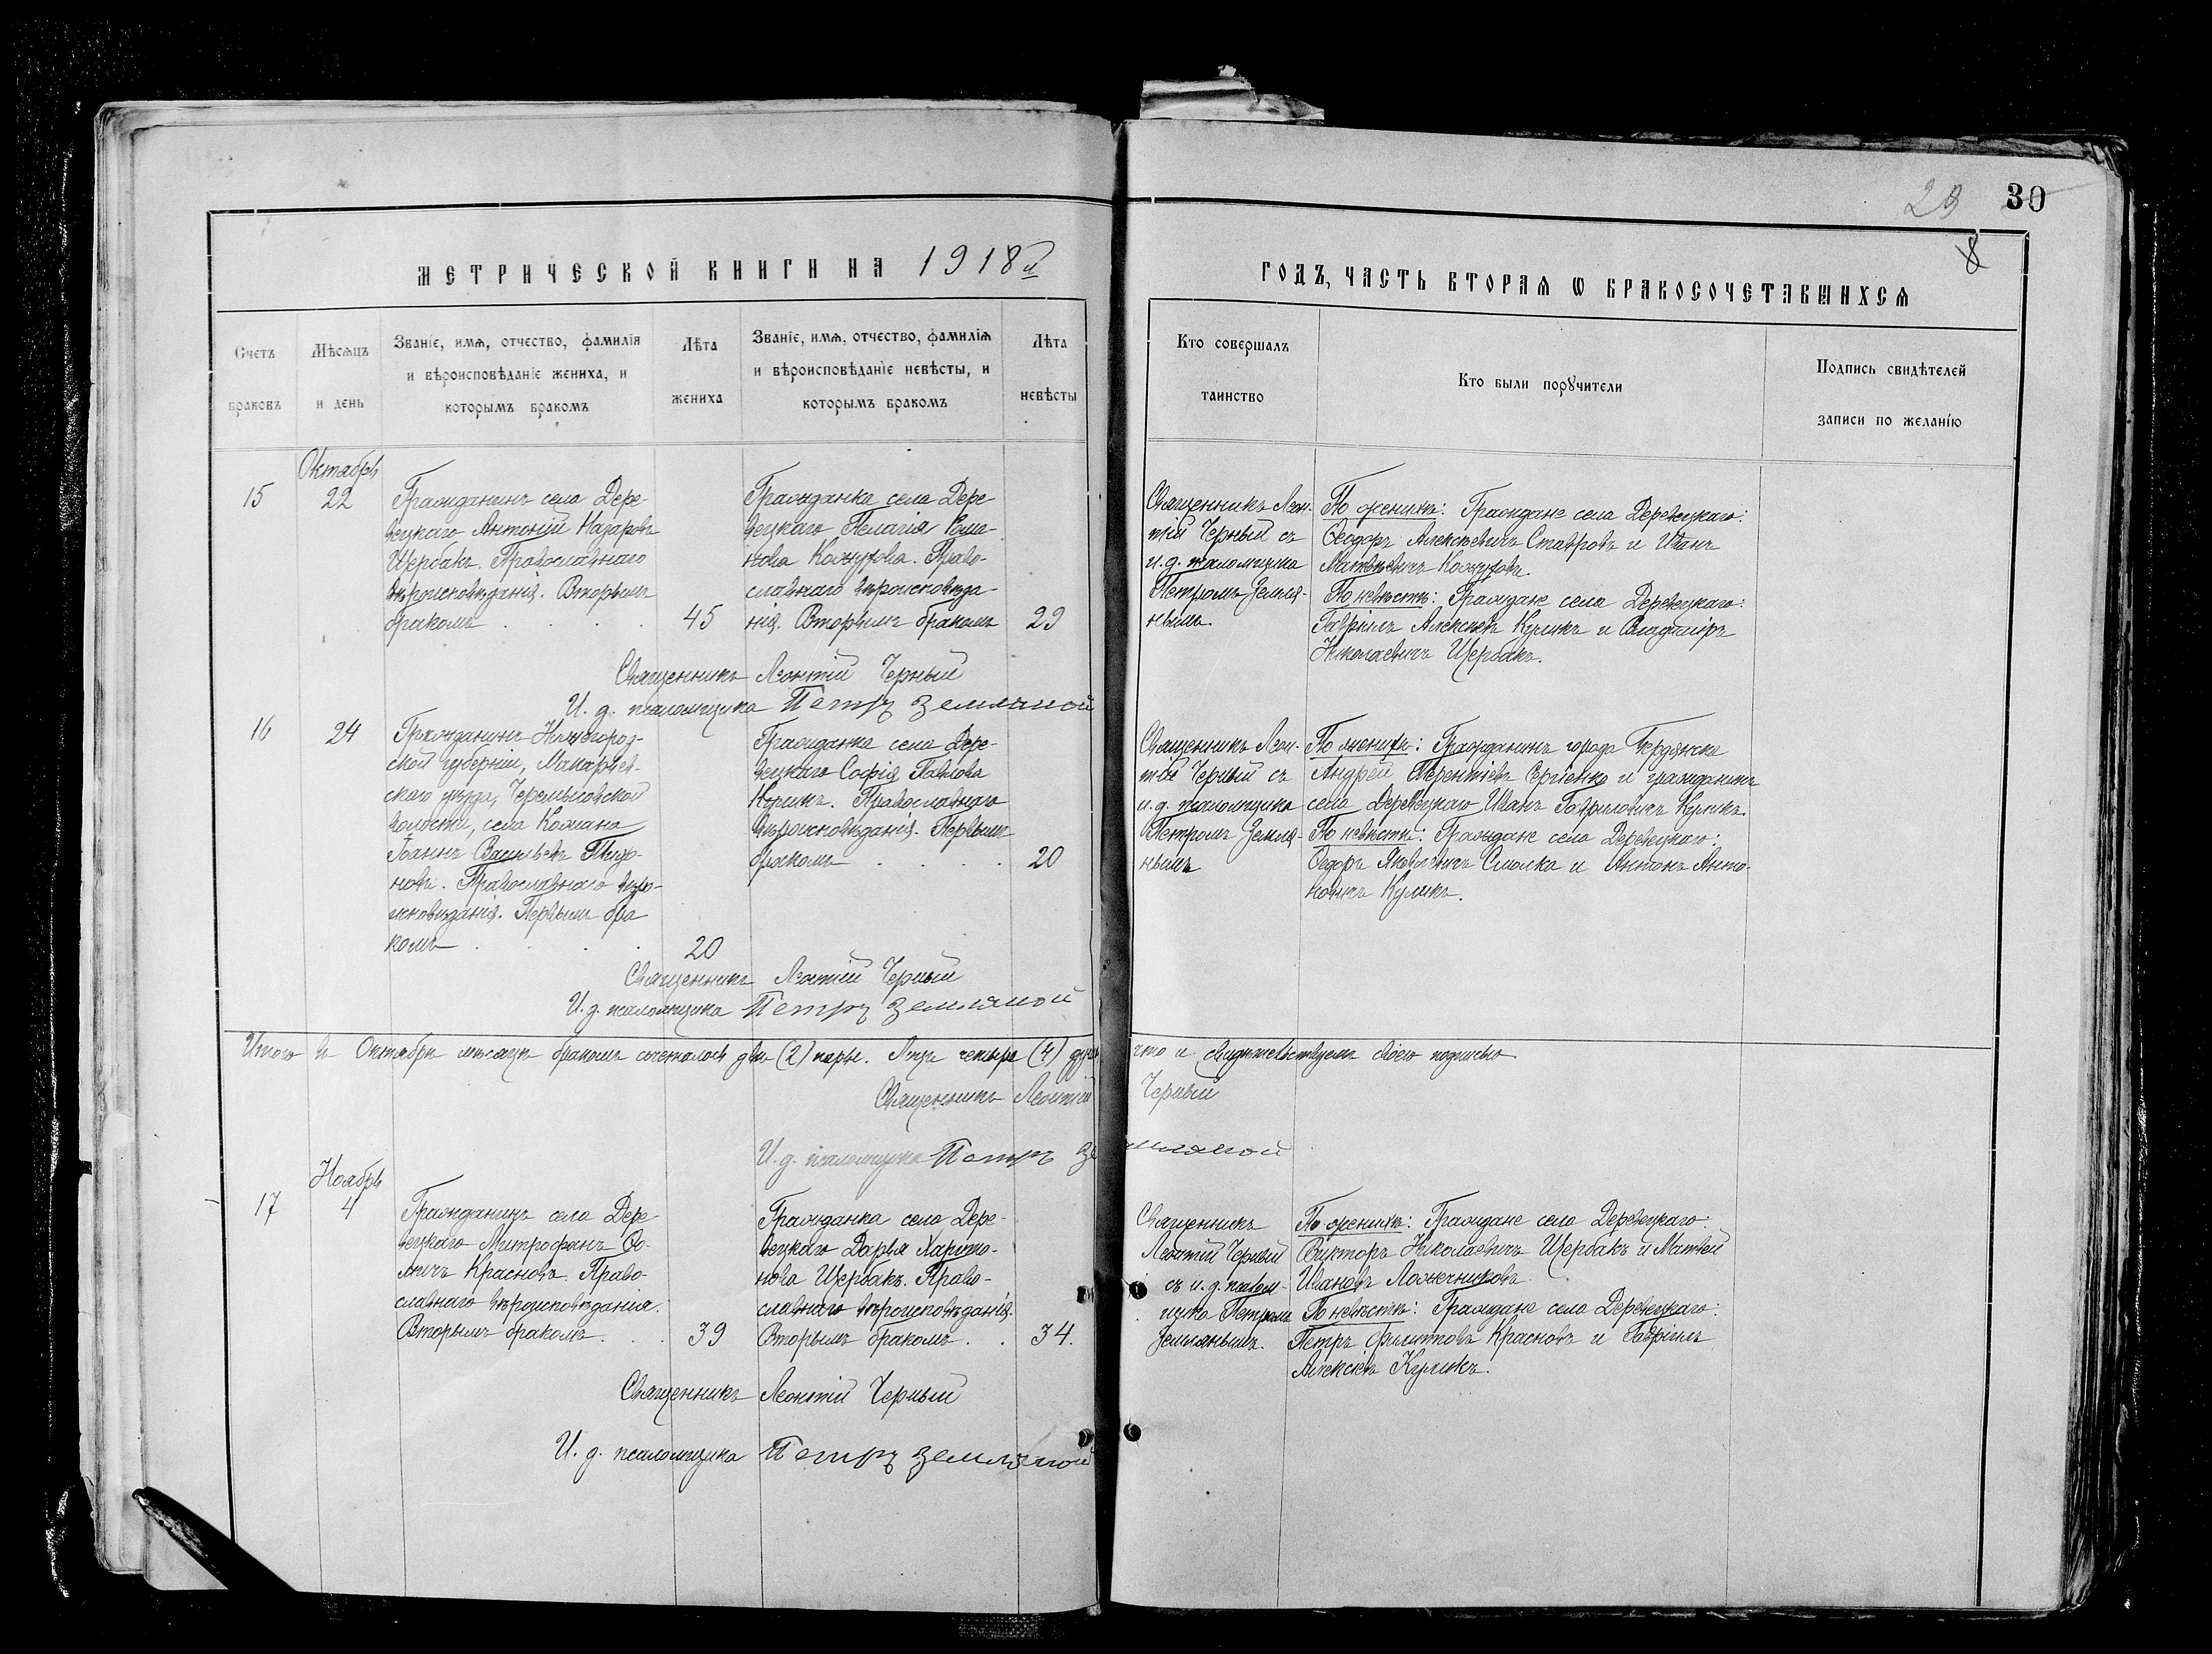 29 30
8
МЕТРИЧЕСКОЙ КНИГИ НА 1918й
ГОДЪ, ЧАСТЬ ВТОРАѦ Ѡ БРАКОСОЧЕТАВШИХСѦ
Счетъ браковъ
Мѣсѧцъ и день
Званіе, имѧ, отчество, фамилія
и вѣроисповѣданіе жениха, и
которымъ бракомъ
Лѣта жениха
Званіе, имѧ, отчество, фамилія
и вѣроисповѣданіе невѣсты, и
которымъ бракомъ
Лѣта невѣсты
Кто совершалъ
таинство
Кто были порꙋчители
Подпись свидѣтелей
записи по желанію
Октябрь
15
22
Гражданинъ села Дере-
вецкаго Антоній Назаровъ
Щербакъ. Православнаго
вѣроисповѣданія. Вторымъ
бракомъ . . . .
45
Гражданка села Дере-
вецкаго Пелагія
Кожухова. Право-
славнаго вѣроисповѣда-
нія. Вторымъ бракомъ
29
Священникъ Леон-
тій Черный съ
и.д. псаломщика
Петромъ Земля-
нымъ.
По женихѣ: Граждане села Деревецкаго:
Ѳеодоръ Алексѣевичъ Ставровъ и Иванъ
Матвѣевичъ Кожуховъ.
По невѣстѣ: Граждане села Деревецкаго:
Гавріилъ Алексѣевъ Куликъ и Владиміръ
Николаевичъ Щербакъ.
Священникъ Леонтій Черный
И. д. псаломщика Петръ Земляной
16
24
Гражданинъ Нижегород-
ской губерніи, Макарьев-
скаго уѣзда,
волости, села
Іоаннъ Васильевъ
Православнаго вѣро-
исповѣданія. Первымъ бра
комъ . . . .
20
Гражданка села Дере-
вецкаго Софія Павлова
Куликъ. Православнаго
вѣроисповѣданія. Первымъ
бракомъ . . . .
20
Священникъ Леон-
тій Черный съ
и.д. псаломщика
Петромъ Земля-
нымъ
По женихѣ: Гражданинъ города Бердянска
Андрей Терентіевъ Сергіенко и гражданинъ
села Деревецкаго Иванъ Гавриловичъ Куликъ.
По невѣстѣ: Граждане села Деревецкаго:
Ѳедоръ Яковлевичъ Смолка и Антонъ Анто-
новичъ Куликъ.
Священникъ Леонтій Черный
И.д. псаломщика Петръ Земляной
Итого въ Октябрѣ мѣсяцѣ бракомъ сочеталось двѣ (2) пары. Лицъ четыре (4) что и свидѣтельствуемъ своею подписью
Священникъ Леонтій Черный
И.д. псаломщика Петръ Земляной
Ноябрь
17
4
Гражданинъ села Дере-
вецкаго Митрофанъ Ѳо-
мичъ Красновъ. Право-
славнаго вѣроисповѣданія.
Вторымъ бракомъ . . .
39
Гражданка села Дере-
вецкаго Дарья Харито-
нова Щербакъ. Право-
славнаго вѣроисповѣданія.
Вторымъ бракомъ . .
34.
Священникъ
Леонтій Черный
съ и.д. псалом-
щика Петромъ
Землянымъ.
По женихѣ: Граждане села Деревецкаго:
Викторъ Николаевичъ Щербакъ и Матвѣй
Ивановъ Ложечниковъ.
По невѣстѣ: Граждане села Деревецкаго:
Петръ Филипповъ Красновъ и Гавріилъ
Алексѣевъ Куликъ.
Священникъ Леонтій Черный
И. д. псаломщика Петръ Земляной